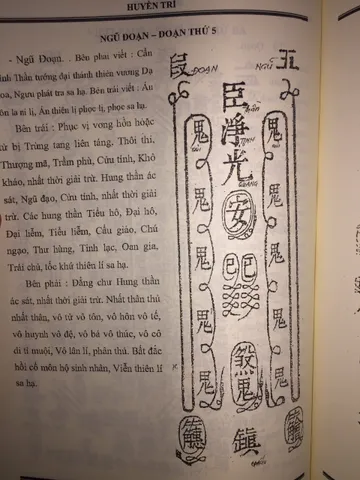 HUYỀN TRÍ
NGŨ ĐOẠN – ĐOẠN THỨ 5
- Ngũ Đoạn. . Bên phai viết : Cẩn
ỉnh Thần tướng đại thánh thiên vương Dạ
oa, Ngưu phát tra sa hạ. Bên trái viết : Án
ôn la ni lị, Án thiên lị phọc lị, phọc sa hạ.
Bên trái : Phục vị vong hồn hoặc
tử bị Trùng tang liên táng, Thôi thi,
Thượng mã, Trầm phù, Cửu tinh, Khô
kháo, nhất thời giải trừ. Hung thần ác
sát, Ngũ đạo, Cửu tinh, nhất thời giải
trừ. Các hung thần Tiểu hô, Đại hô,
Đại hễm, Tiểu hễm, Cẩu giáo, Chú
ngạo, Thư hùng, Tinh lạc, Oan gia,
Trái chủ, tốc khứ thiên lí sa hạ.
Bên phải : Đẳng chư Hung thần
ác sát, nhất thời giải trừ. Nhất thân thủ
nhất thân, vô tử vô tôn, vô hôn vô tế,
vô huynh vô đệ, vô bá vô thúc, vô cô
di tỉ muội, Vô lân lí, phân thủ. Bất đắc
hồi cố môn hộ sinh nhân, Viễn thiên lí
sa hạ.
段 ĐOẠN NGŨ 五
臣
淨 TỊNH
光 QUANG
安
巴 巴
煞
鬼
鎮
鬼
鬼
鬼
鬼
鬼
鬼
鬼
鬼
鬼
鬼